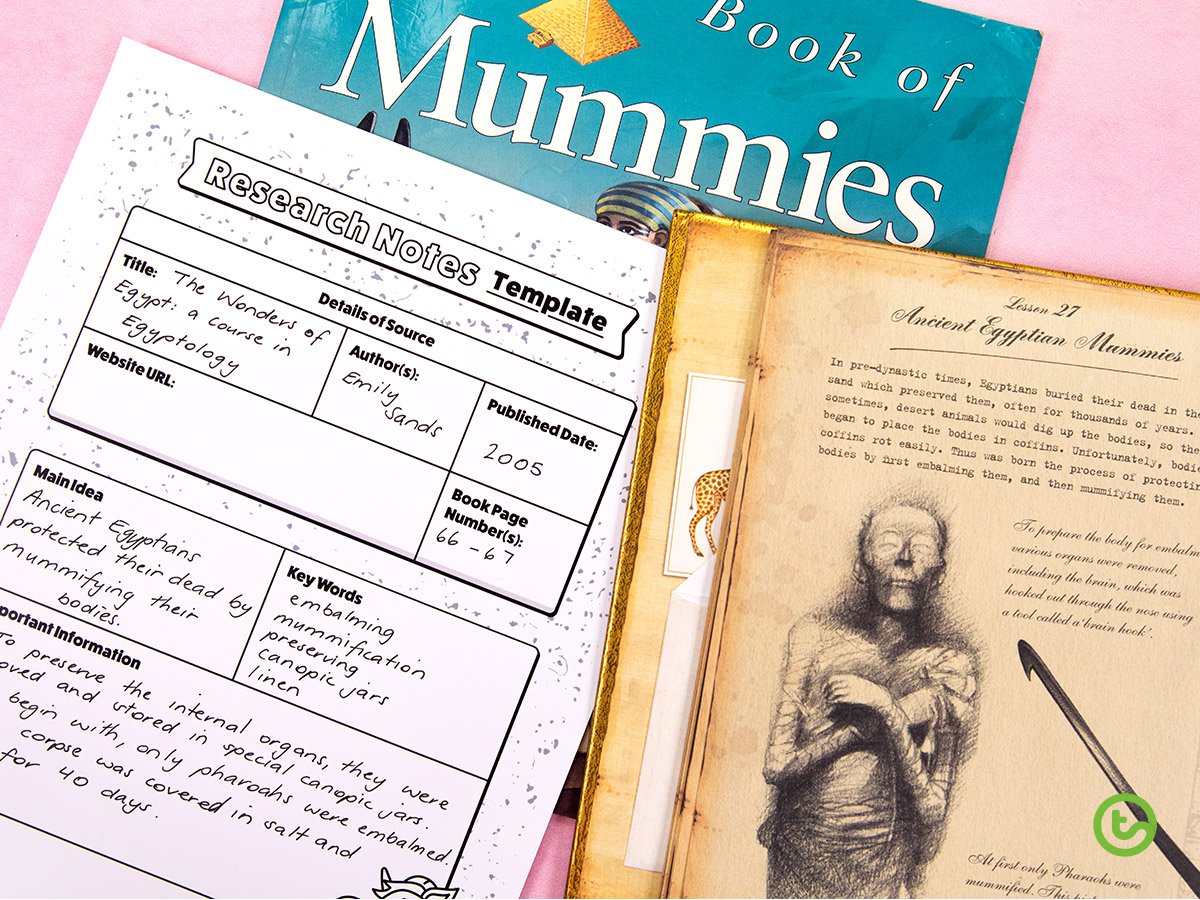 Book of
Mummies
Research Notes Template
Details of Source
Title: The Wonders of
Egypt: a course in
Egyptology
Author(s):
Emily
Sands
Published Date:
2005
Website URL:
Book Page
Number(s):
66 - 67
Main Idea
Ancient Egyptians
protected their dead by
mummifying their
bodies.
Key Words
embalming
mummification
preserving
canopic jars
linen
Information
To preserve the internal organs, they were
and stored in special canopic jars.
begin with, only pharoahs were embalmed
corpse was covered in salt and
for 40 days.
Lesson 27
Ancient Egyptian Mummies
In pre-dynastic times, Egyptians buried their dead in the
sand which preserved them, often for thousands of years.
sometimes, desert animals would dig up the bodies, so
began to place the bodies in coffins. Unfortunately,
coffins rot easily. Thus was born the process of
bodies by first embalming them, and then mummifying them.
To prepare the body for
various organs were removed,
including the brain, which was
hooked out through the nose using
a tool called a 'brain hook'.
At first only Pharaohs were
mummified. This